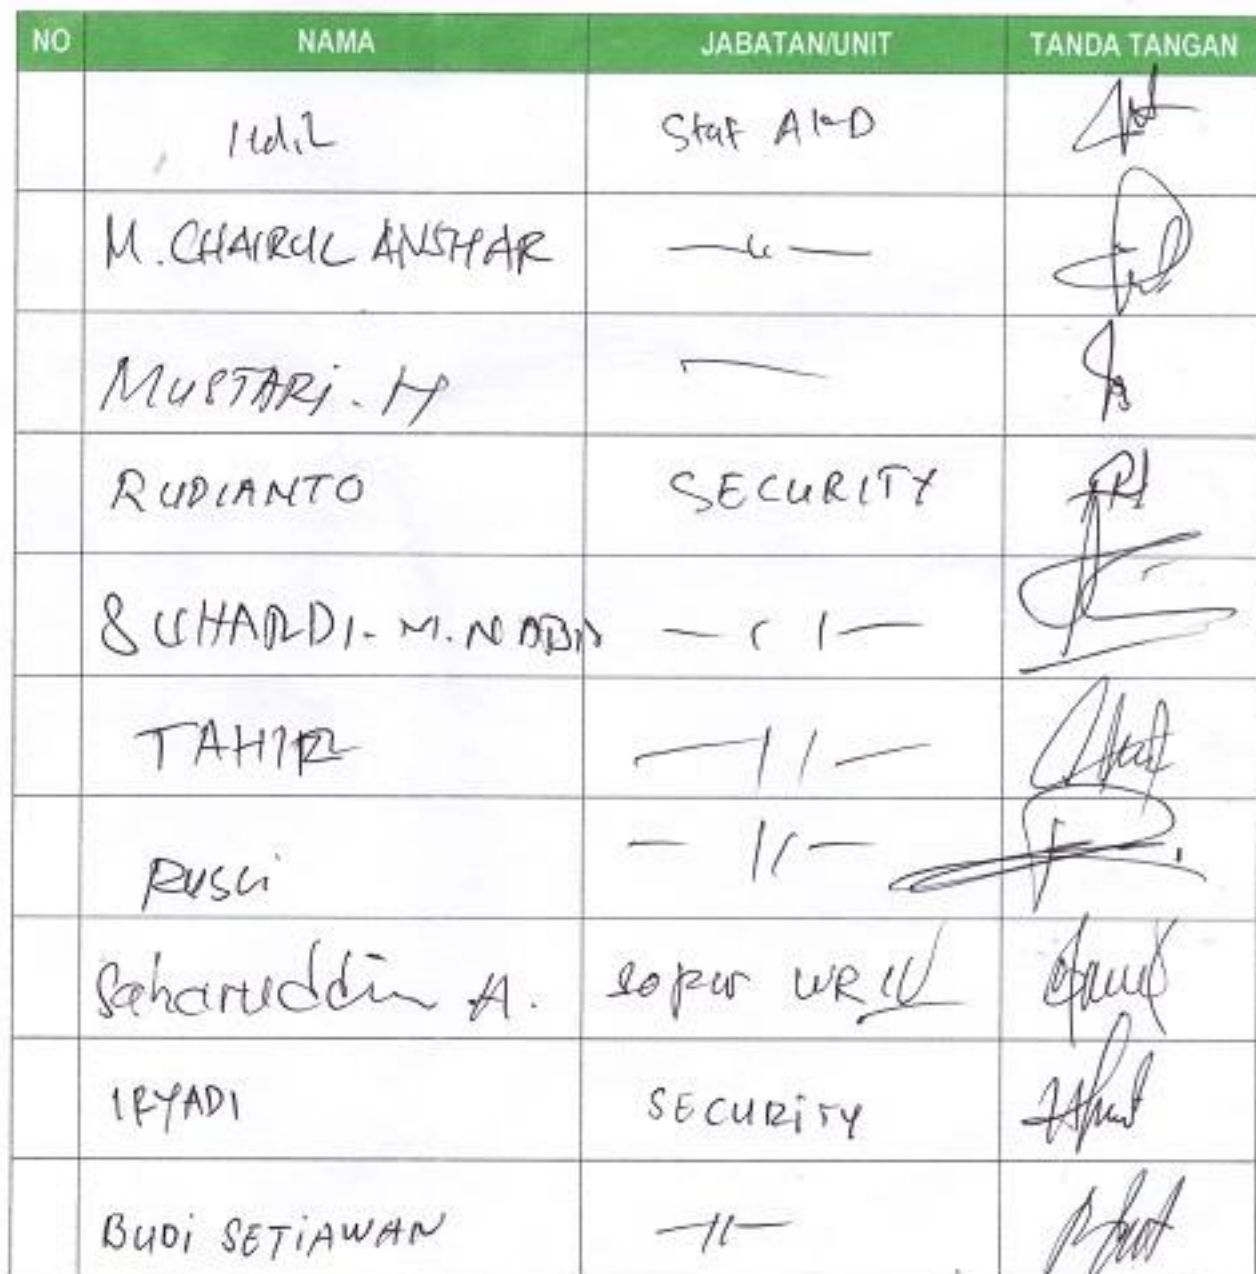 NO NAMA JABATAN/UNIT TANDA TANGAN
Staf
M. CHAIRUL ANSHAR
MUSTARi. H
RUDIANTO SECURITY
SUHARDI. M.
TAHIR
RUSLi
Saharuddin A. WR IV
IRYADI SECURiTY
BUDi SETiAWAN